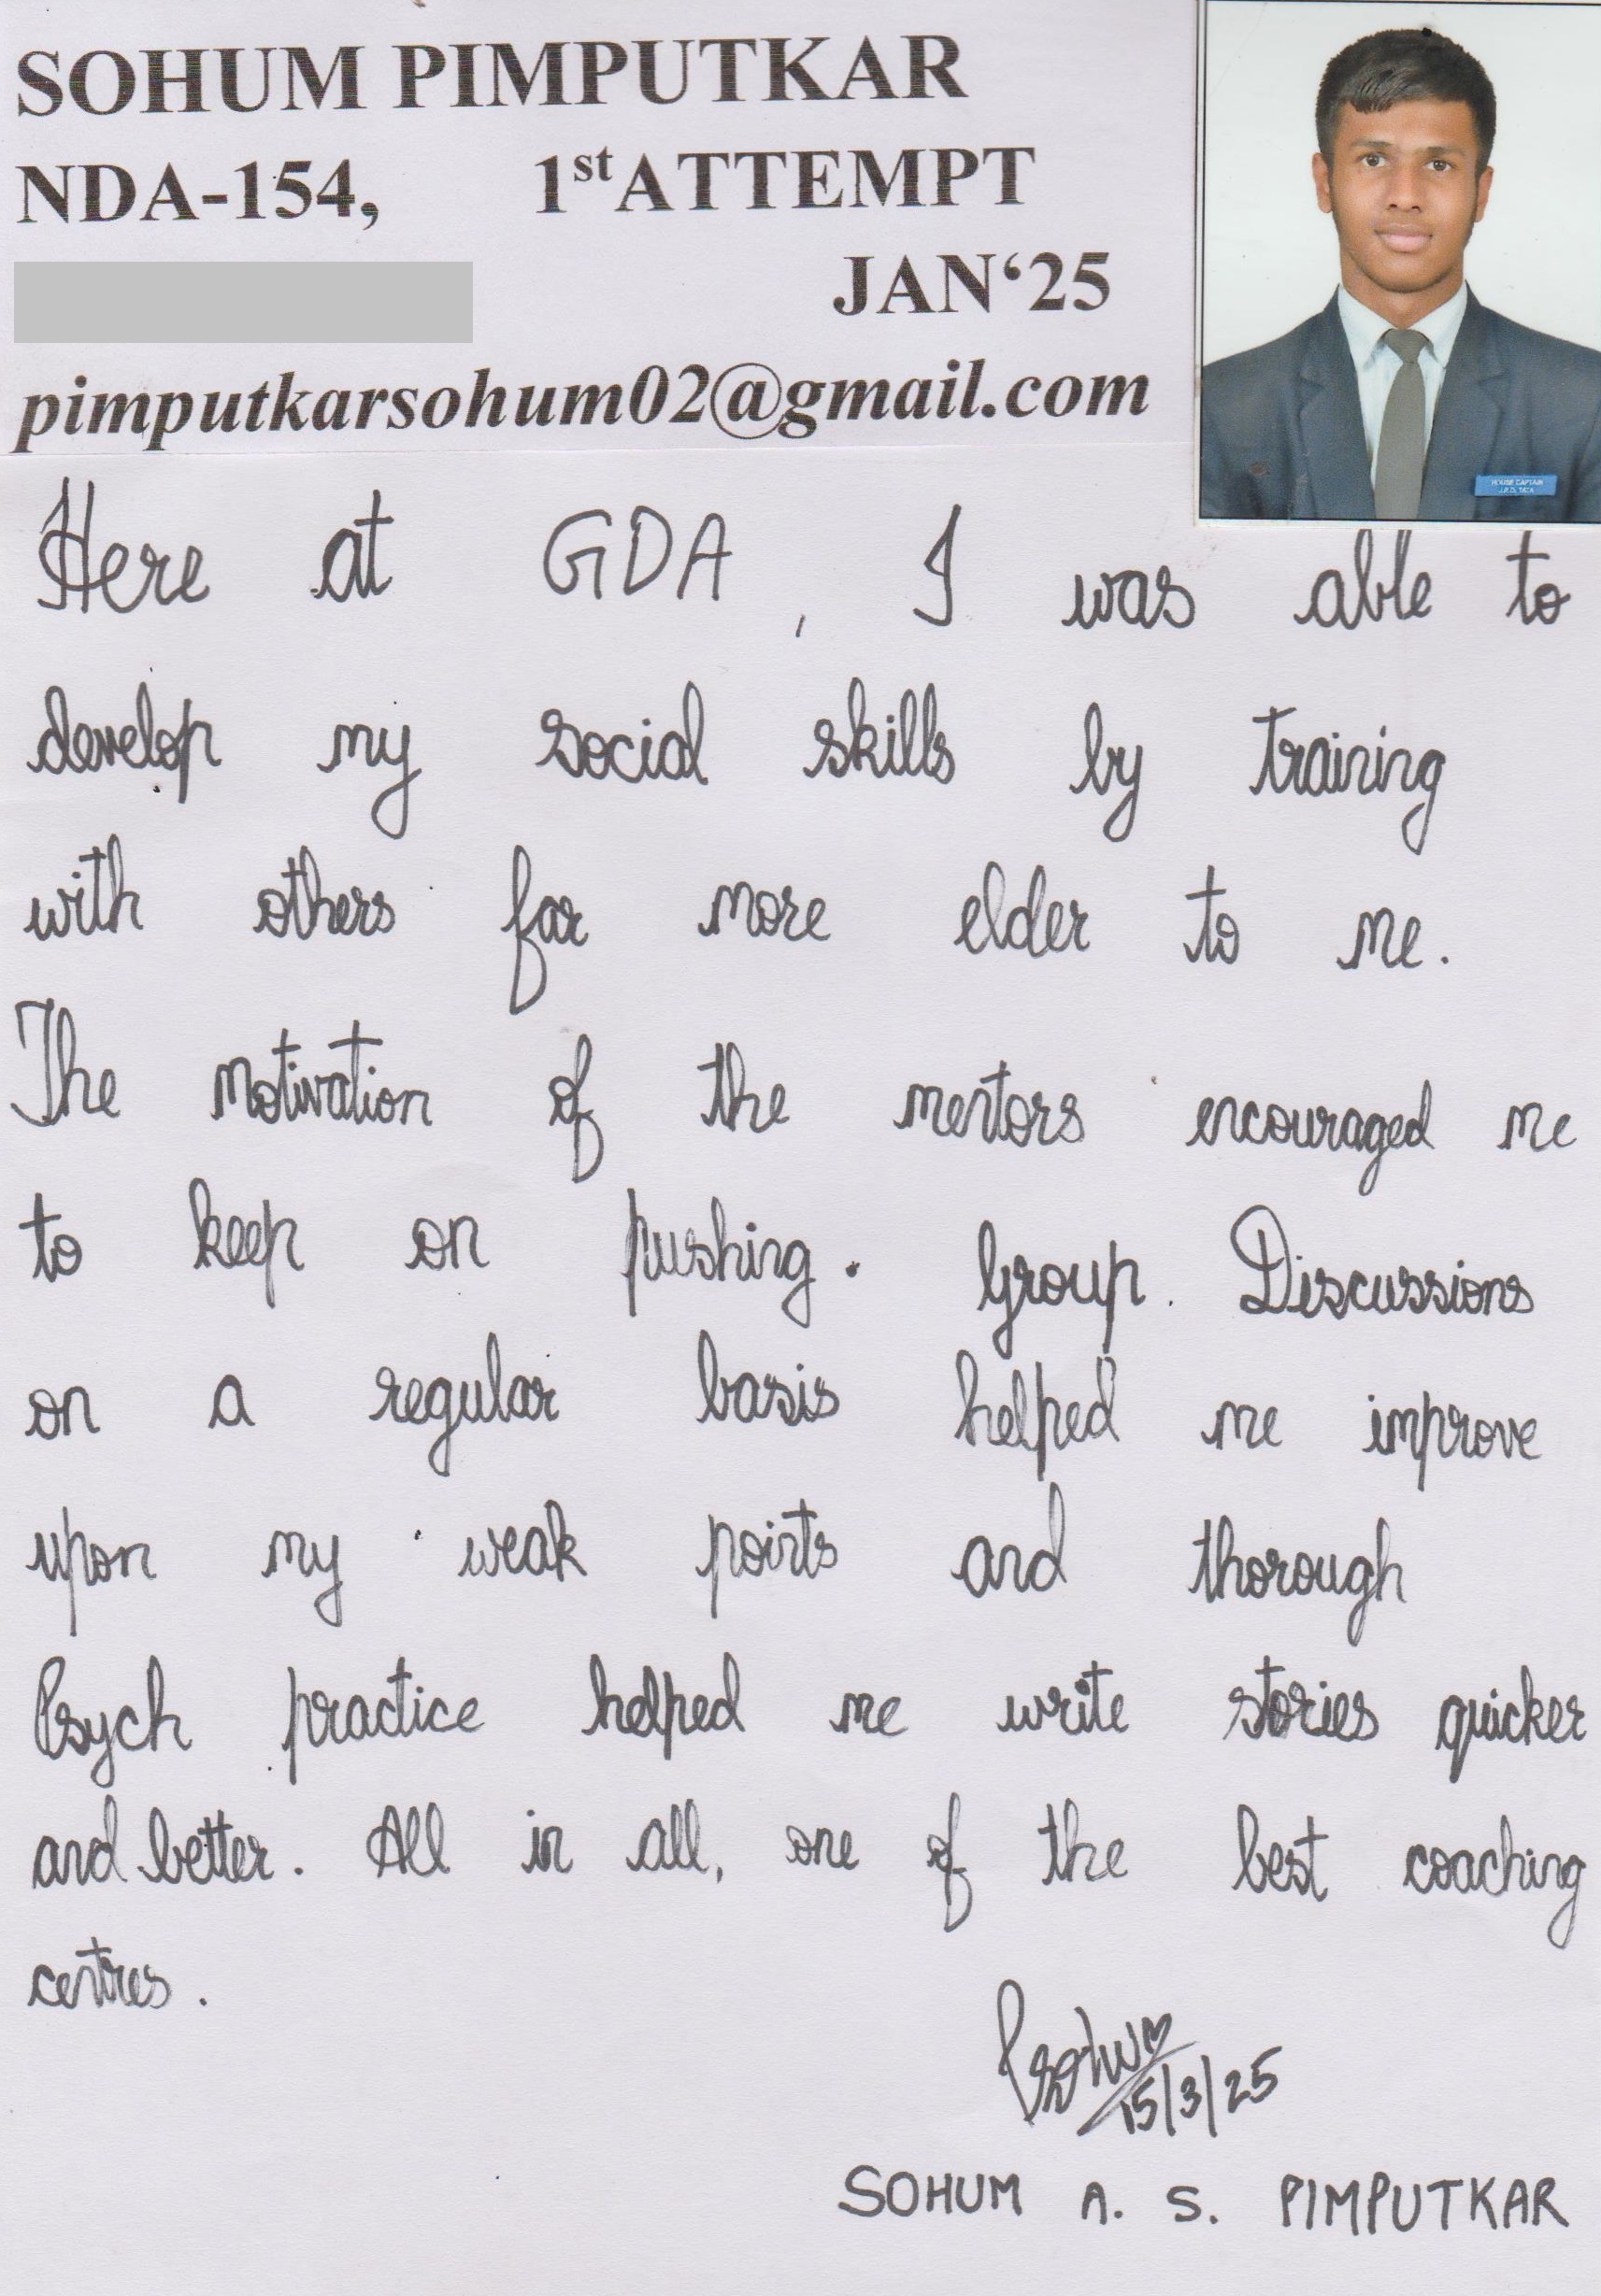 SOHUM PIMPUTKAR
NDA-154, 1st ATTEMPT
JAN‘25
pimputkarsohum02@gmail.com
HOUSE CAPTAIN
J.R.D. TATA
Here at GDA, I was able to
develop my social skills by training
with others far more elder to me.
The motivation of the mentors encouraged me
to keep on pushing. Group Discussions
on a regular basis helped me improve
upon my weak points and thorough
Psych practice helped me write stories quicker
and better. All in all, one of the best coaching
centres.
Psohum
15/3/25
SOHUM A. S. PIMPUTKAR